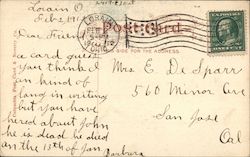 Lorain O
Feb 2, 191
Dear Friend
a card guess
you thinked
un kind of
lang in writing
but you have
hered about john
he is dead he died
on the 13th of jan
Barbara
LORAIN
FEB
Post Card
SIDE FOR THE ADDRESS
Mrs E. De Sparr
560 Minor Ave
San Jose
Cal